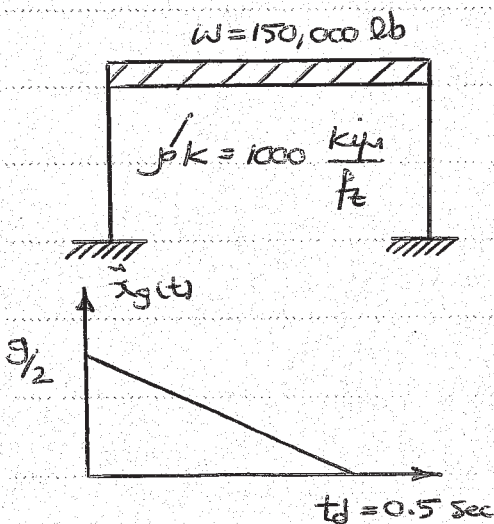 W=150,000 lb
k = 1000 kips/ft
ẍg(t)
g/2
td = 0.5 sec